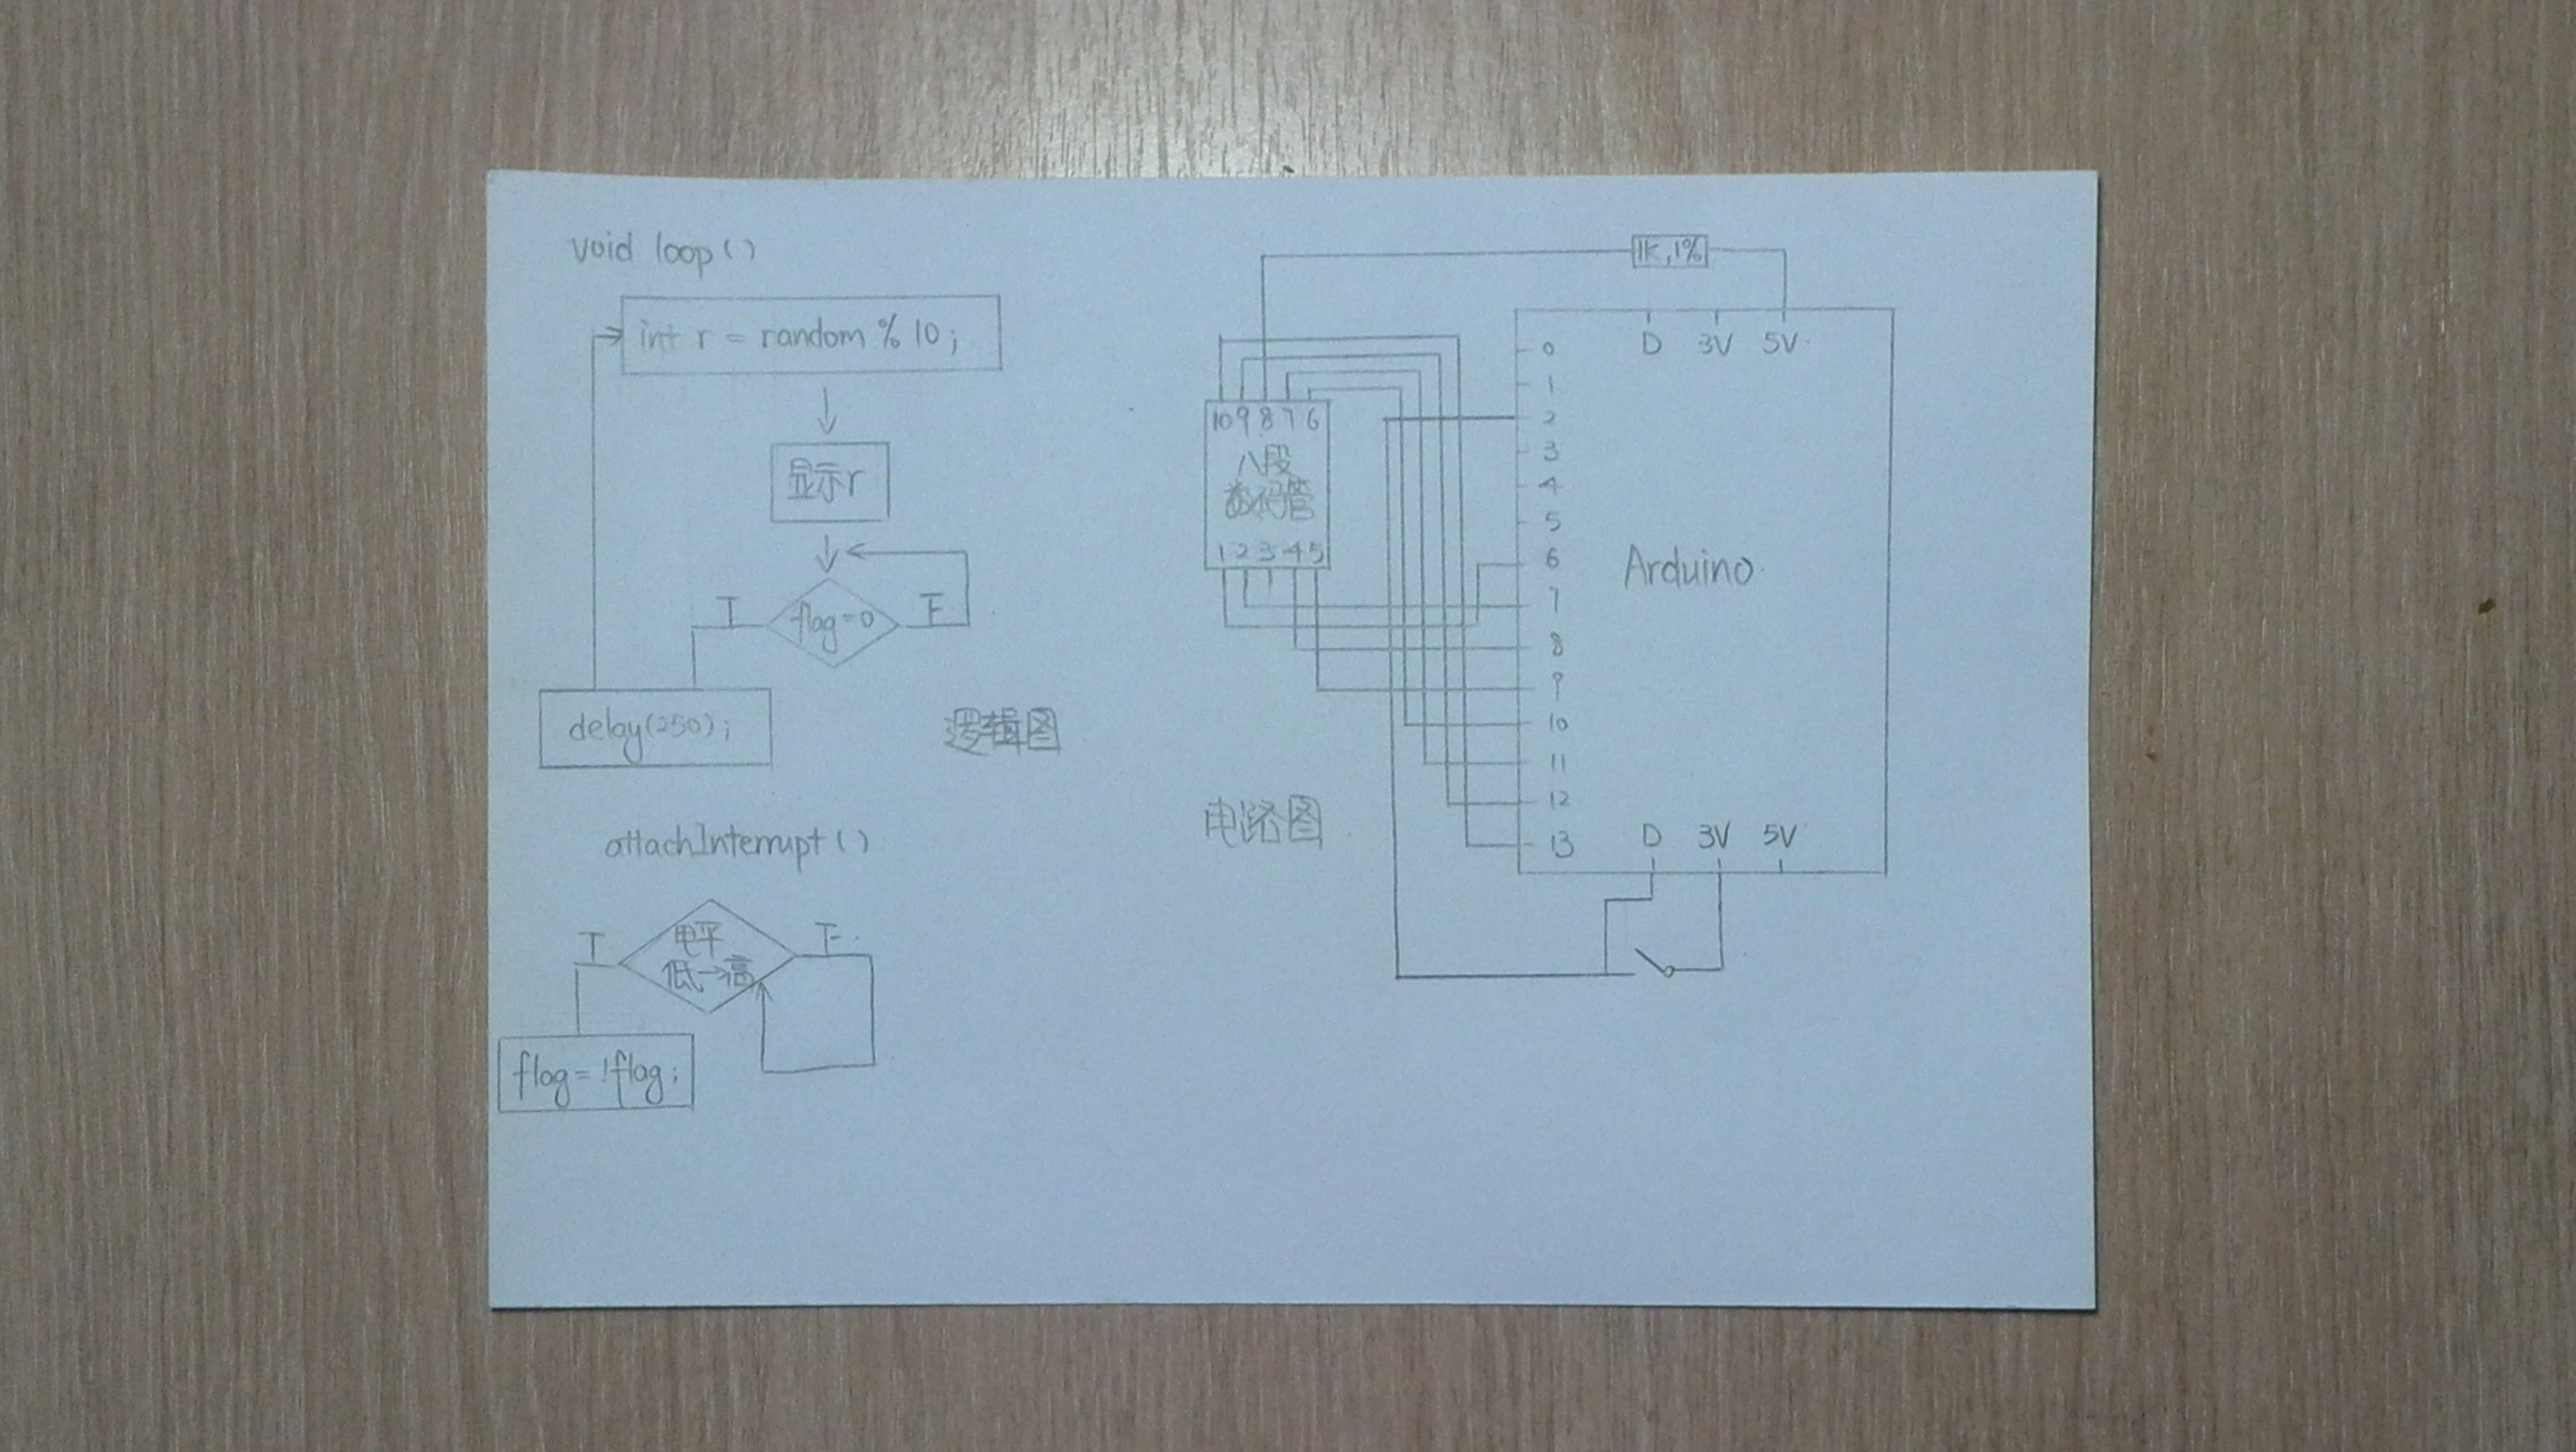 void loop()
int r = random % 10;
显示r
flag=0
T
F
delay(250);
逻辑图
attachInterrupt()
电平
低→高
T
F
flag=!flag;
1K,1%
10 9 8 7 6
八段
数码管
1 2 3 4 5
电路图
D 3V 5V
0
1
2
3
4
5
6
7
8
9
10
11
12
13
Arduino
D 3V 5V